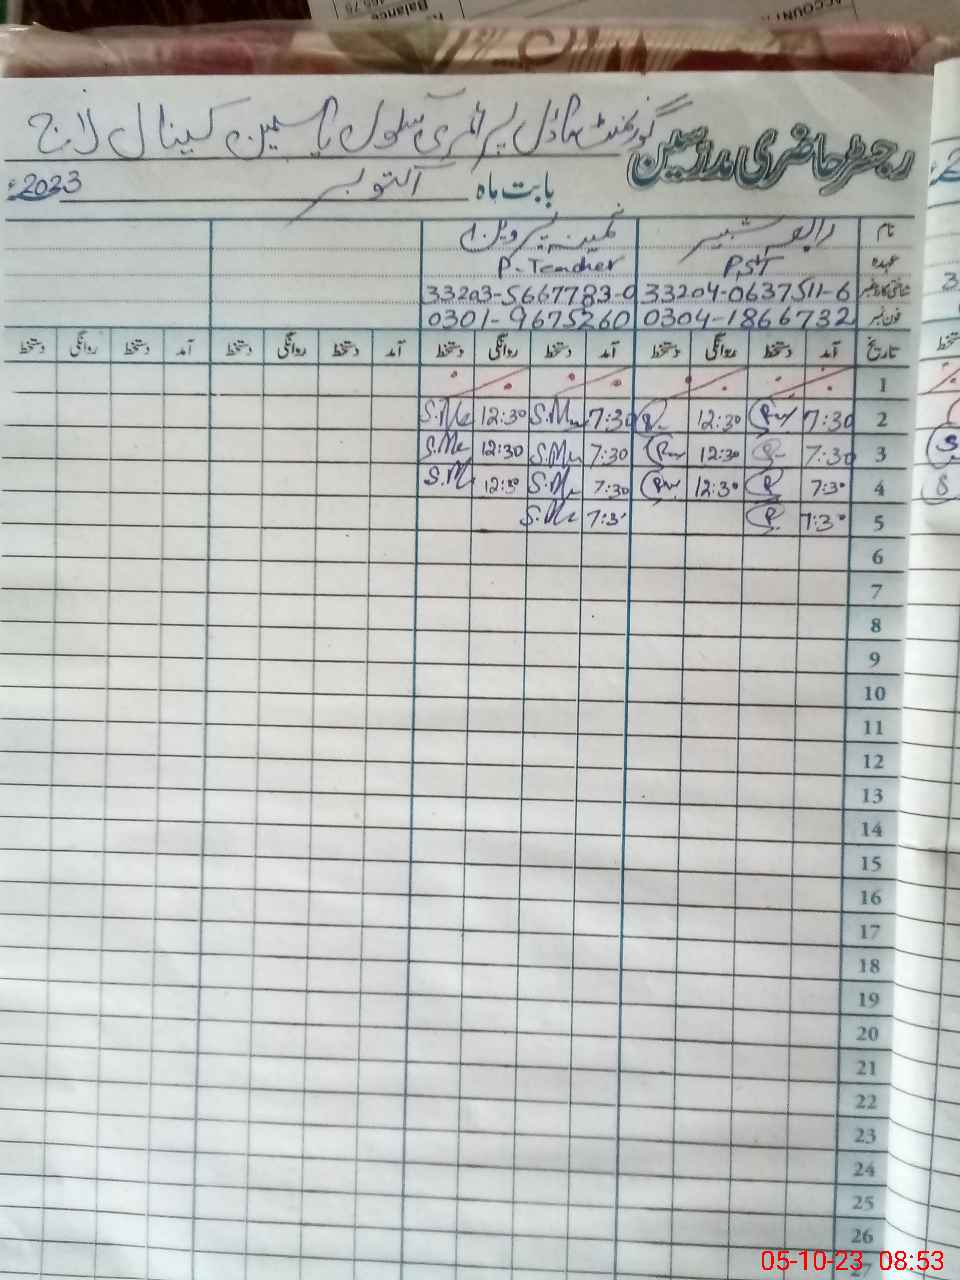 Balance
ACCOUNT
رجسٹر حاضری مدرسین گورنمنٹ ماڈل پرائمری سکول یاسمین کینال لاج
بابت ماہ اکتوبر 2023ء
نام رابعہ شبیر ثمینہ پروین
عہدہ PST P-Teacher
شناختی کارڈ نمبر 33204-0637511-6 33203-5667783-0
فون نمبر 0304-1866732 0301-9675260
تاریخ آمد دستخط روانگی دستخط آمد دستخط روانگی دستخط آمد دستخط روانگی دستخط آمد دستخط روانگی دستخط
1
2 7:30 12:30 7:30 12:30
3 7:30 12:30 7:30 12:30
4 7:30 12:30 7:30 12:30
5 7:30 7:30
6
7
8
9
10
11
12
13
14
15
16
17
18
19
20
21
22
23
24
25
26
27
05-10-23 08:53